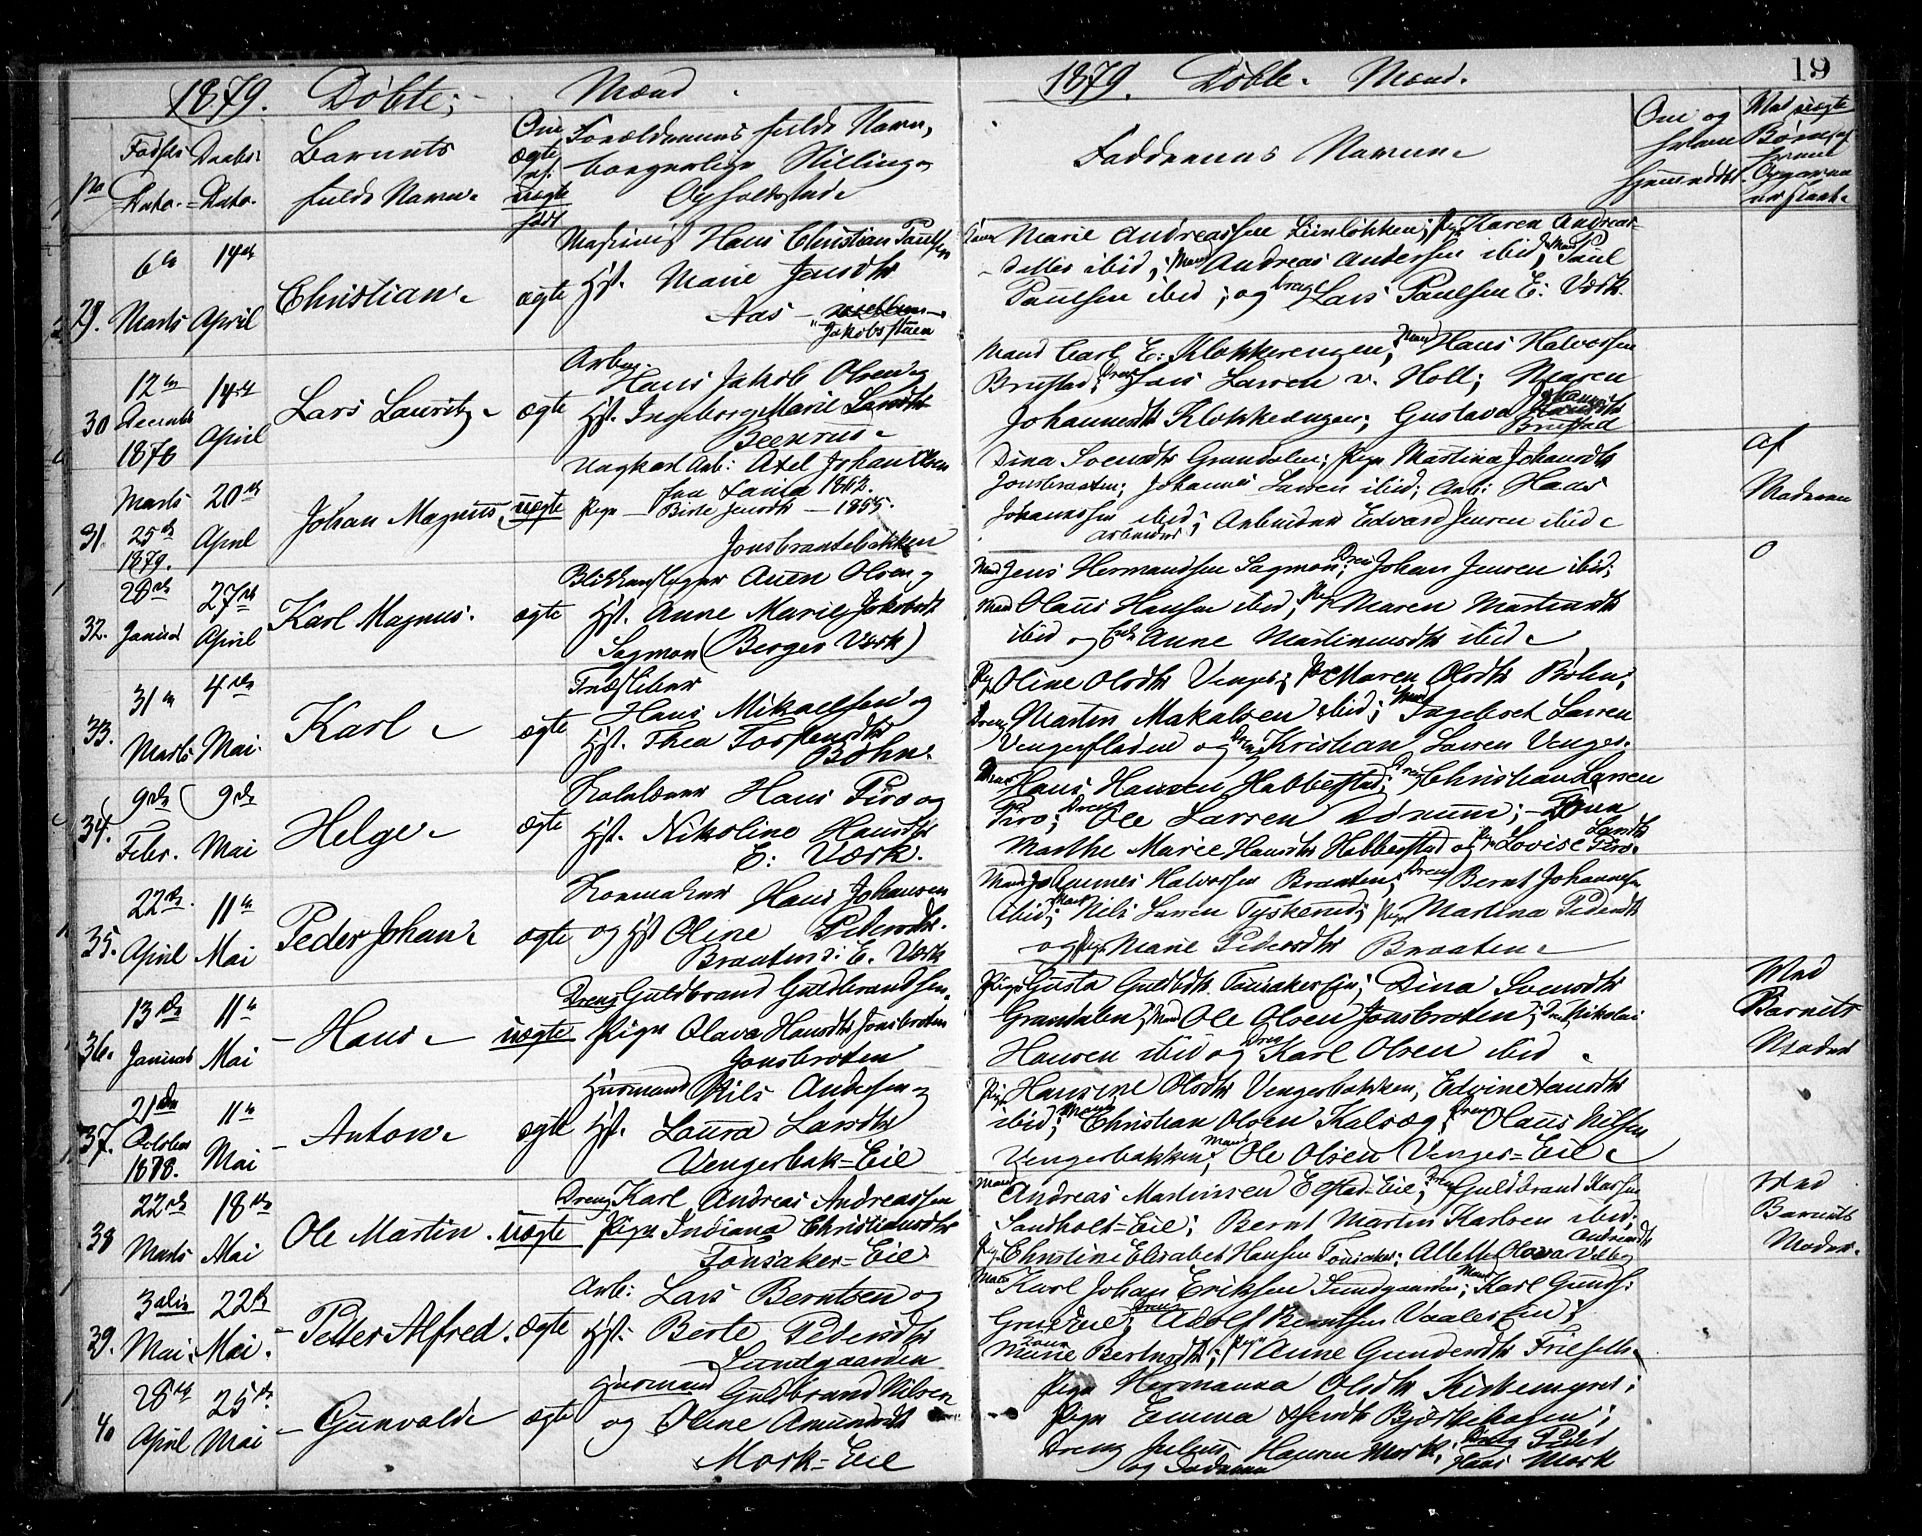 1879. Døbte; Mænd.
No
Fødsels Dato.
Daabs Dato.
Barnets fulde Navn.
Om ægte el. uægte født
Forældrenes fulde Navn, borgerlige Stilling og Opholdssted
29. 6te Marts 14de April
Christian.
ægte
Maskinist Hans Christian Paulsen
Hst. Marie Jensdtr
Aas
Jakobsstuen
30 12te December 1878 14de April
Lars Lauritz.
ægte
Arb.
Hans Jakob Olsen og
Hst. Ingeborg Marie Larsdtr
31. Marts 25de 1879. 20de April
Johan Magnus.
uægte
Ungkarl Arb: Axel Johan Olsen
fra 1862.
Pige Birte Jensdtr – 1855.
Jonsbraatebakken
32. 28de Januar 27de April
Karl Magnus.
ægte
Blikkenslager Auen Olsen og
Hst. Anne Marie Jakobsdt
Sagmoen (Berger Værk)
33. 31te Marts 4de Mai.
Karl.
ægte
Træsliber
Hans Mikaelsen og
Hst. Thea Torstensdtr
Bøhn.
34. 9de Febr. 9de Mai
Helge.
ægte
Hans Piro og
Hst. Nikoline Hansdtr
E. Værk.
35. 22de April 11te Mai
Peder Johan.
ægte
Hans Johansen
og Hst Oline Pedersdtr.
Braaten: E. Værk
36. 13de Januar 11te Mai
Hans.
uægte
Dreng Guldbrand Guldbrandsen.
Pige Olava Hansdtr Jonsbroten
Jonsbroten
37. 21de October 1878. 11te Mai
Anton.
ægte
Husmand Nils Andersen og
Hst. Laura Larsdtr
Vengerbak=Eie
38 22de Marts 18de Mai
Ole Martin.
uægte
Dreng Karl Andreas Andreassen
Pige Indiana Christiansdtr
Tønsaker=Eie
39. 3die Mai. 22de Mai.
Petter Alfred.
ægte
Arb: Lars Berntsen og
Hst. Berte Pedersdtr
Lundgaarden
40 28de April 25de Mai
Gunvald
ægte
Husmand Guldbrand Nilsen
og Oline Amundsdt
Mork=Eie
19
1879. Døbte. Mænd.
Faddernes Navne.
Om og hvem hjemmedøbt
Ved uægte Børn, af hvem Opgaven er skeet.
Marie Andreassen Linløkken; Pige Karen Andreas-
datter ibid; Mand Andreas Andersen ibid; Mand Paul
Paulsen ibid; og Dreng Lars Paulsen E. Værk.
Mand Carl E. Klokkerengen; Mand Hans Halvorsen
Brustad; Dreng Lars Larsen v. Holl; Maren
Johannesdt Klokkerengen; Gustava
Brustad
Dina Svensdtr Grandalen; Pige Martina Johansdt
Jonsbraaten; Johannes Larsen ibid; Arb: Hans
Johannesen ibid; Arbeider Edvard Jensen ibid.
af Moderen
Mand Jens Hermandsen Sagmoen; Dreng Johan Jensen ibid;
Mand Olaus Hansen ibid; Pige Maren Martinsdt
ibid og Anne Martinusdtr ibid.
0
Pige Oline Olsdtr Venger; Pige Maren Olsdtr Bøhn;
Dreng Martin Mikalsen ibid; Mand Ingebret Larsen
Vengerfladene og Dreng Kristian Larsen Venger.
Mand Hans Hansen Habberstad; Dreng Christian Larsen
Piro; Dreng Ole Larsen Dønum; Kona
Marthe Marie Hansdtr Habberstad og Pige Lovise Larsdtr Piro.
Mand Johannes Halvorsen Braaten; Dreng Bernt Johannesen
ibid; Mand Nils Larsen Tyskerud; Pige Martina Pedersdt
og Pige Marie Pedersdtr Braaten.
Pige Gusta Guldbdt. Tønsaker Eie; Dina Svensdtr
Grandalen; Mand Ole Olsen Jonsbroten; Nikolai
Hansen ibid og Dreng Karl Olsen ibid.
Ved Barnets Moder
Pige Hansine Olsdtr Vengerbakken; Edvine Hansdtr
ibid; Mand Christian Olsen Kalsæg; Dreng Olaus Nilsen
Vengerbakken; Mand Ole Olsen Venger=Eie.
Mand Andreas Martinsen Elstad=Eie; Dreng Guldbrand
Sandholt=Eie; Bernt Martin Karlsen ibid;
Pige Christine Elisabet Hansen Tønsaker; Olava
Ved Barnets Moder.
Mand Karl Johan Eriksen Lundgaarden; Mand Karl Gunds:
Dreng Adolf Berntsen Vaaler Eie;
Kone Marie Berntsdt; Pige Anne Gundersdt
Pige Hermanna Olsdtr
Pige Emma
Dreng Julius Hansen Mork; Dreng Peder
Hans Mork